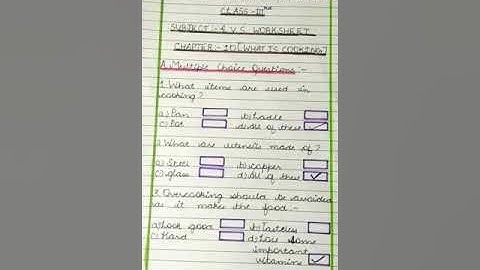 CLASS-III
SUBJECT:- E.V.S. WORKSHEET
CHAPTER:-10[WHAT IS COOKING]
A. Multiple Choice Questions:-
1. What items are used in
cooking?
a) Pan b) Ladle
c) Pot d) All of these ✓
2. What are utensils made of?
a) Steel b) copper
c) glass d) All of these ✓
3. Overcooking should be avoided
as it makes the food:-
a) Look good b) Tasteless
c) Hard d) Lose some
important
vitamins ✓